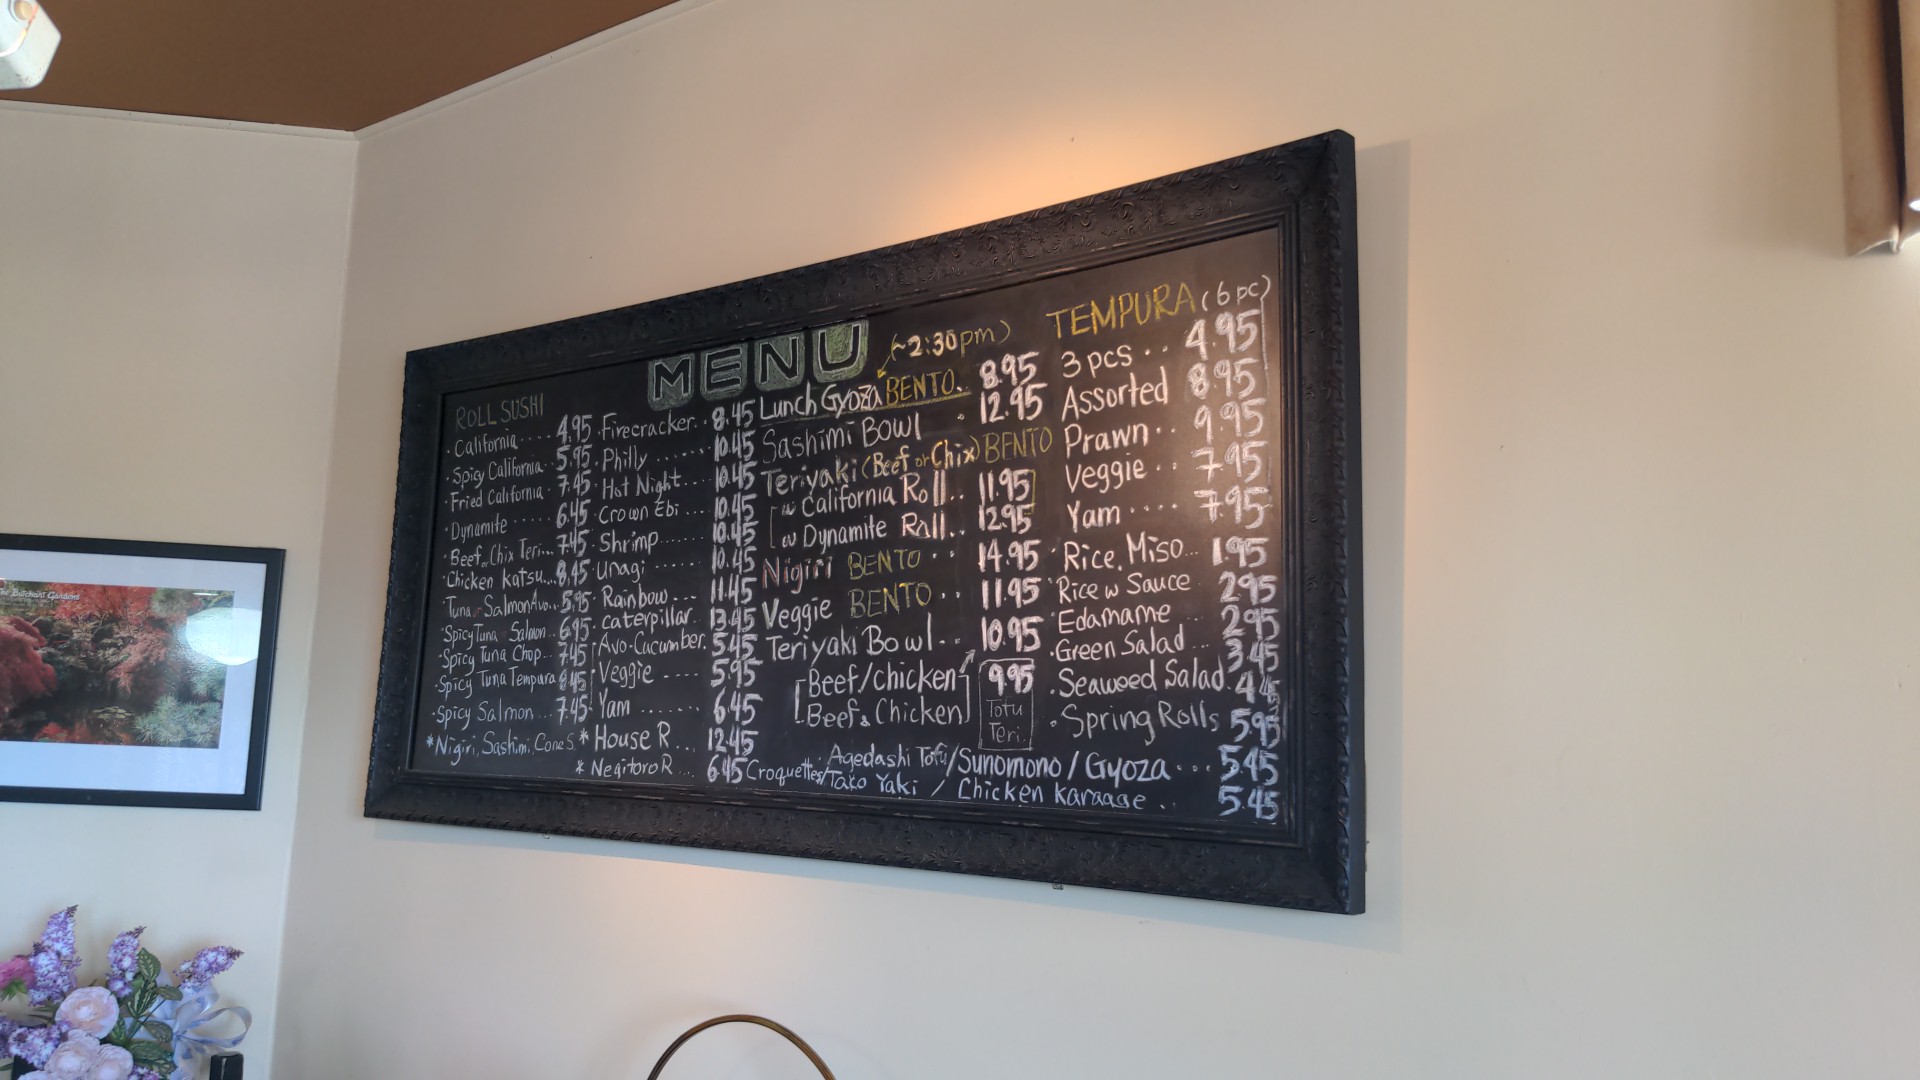 MENU
ROLL SUSHI
· California .... 4.95
· Spicy California 5.95
· Fried California . 7.45
· Dynamite ..... 6.45
· Beef or Chix Teri... 7.45
· Chicken Katsu... 8.45
· Tuna or Salmon Avo.. 5.95
· Spicy Tuna Salmon.. 6.95
· Spicy Tuna Chop.. 7.45
· Spicy Tuna Tempura 8.45
· Spicy Salmon... 7.45
* Nigiri, Sashimi, Cone S.
· Firecracker.. 8.45
· Philly ...... 10.45
· Hot Night.... 10.45
· Crown Ebi ... 10.45
· Shrimp....... 10.45
· Unagi ...... 10.45
· Rainbow... 11.45
· Caterpillar. 13.45
· Avo-Cucumber. 5.45
· Veggie .... 5.95
· Yam ....... 6.45
* House R... 12.45
* Negitoro R... 6.45
(~2:30pm)
Lunch Gyoza BENTO.. 8.95
Sashimi Bowl . 12.95
Teriyaki (Beef or Chix) BENTO
w California Roll.. 11.95
w Dynamite Roll.. 12.95
Nigiri BENTO .. 14.95
Veggie BENTO .. 11.95
Teriyaki Bowl... 10.95
Beef/Chicken
Beef & Chicken
9.95
Tofu
Teri.
TEMPURA (6 pc)
3 pcs .. 4.95
Assorted 8.95
Prawn .. 9.95
Veggie .. 7.95
Yam .... 7.95
· Rice, Miso... 1.95
· Rice w Sauce 2.95
· Edamame ... 2.95
· Green Salad ... 3.45
· Seaweed Salad. 4.45
· Spring Rolls 5.95
· Agedashi Tofu/Sunomono/Gyoza ... 5.45
Croquettes/Tako Yaki / Chicken Karaage .. 5.45
The Butchart Gardens